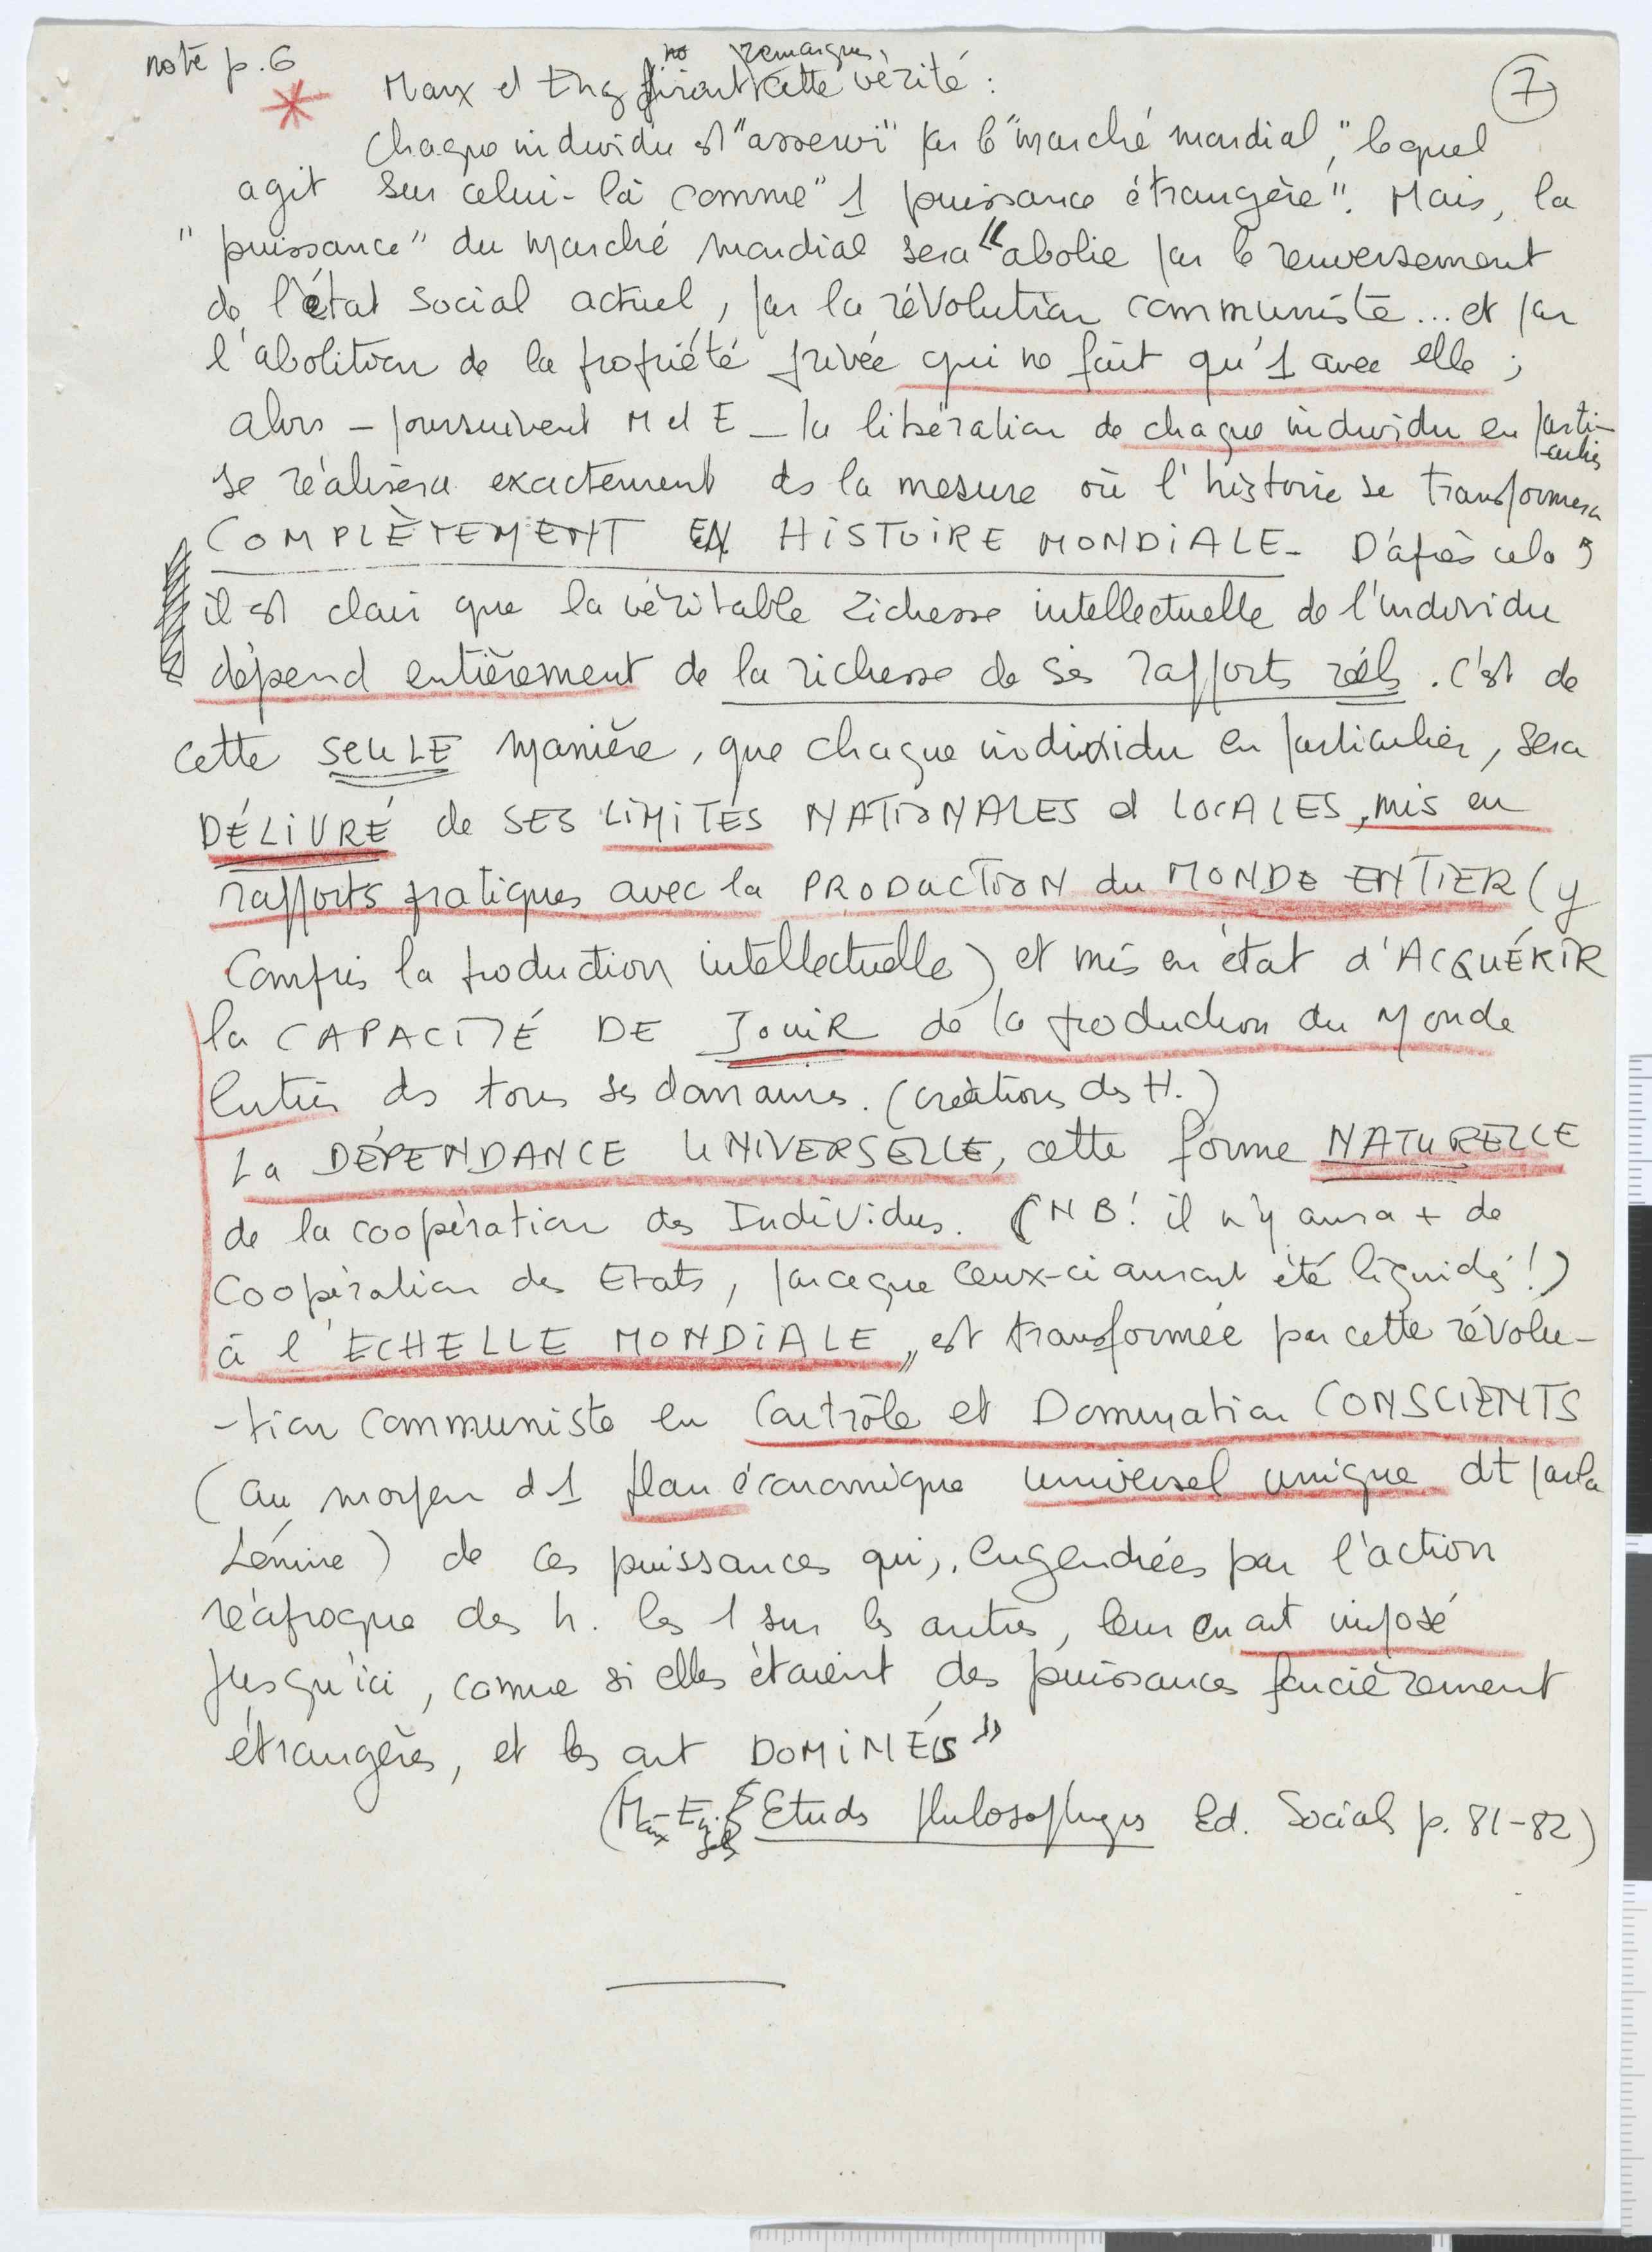 note p. 6
7
no remarque,
* Marx et Eng firent cette vérité :
Chaque individu est "asservi" par le "marché mondial", lequel
agit sur celui-là comme "1 puissance étrangère". Mais, la
"puissance" du marché mondial sera "abolie par le renversement
de l'état social actuel, par la révolution communiste... et par
l'abolition de la propriété privée qui ne fait qu'1 avec elle ;
alors – poursuivent M et E – la libération de chaque individu en parti-
-culier
se réalisera exactement ds la mesure où l'histoire se transformera
COMPLÈTEMENT EN HISTOIRE MONDIALE – D'après cela,
il est clair que la véritable richesse intellectuelle de l'individu
dépend entièrement de la richesse de ses rapports réels. C'est de
cette SEULE manière, que chaque individu en particulier, sera
DÉLIVRÉ de SES LIMITES NATIONALES et LOCALES, mis en
rapports pratiques avec la PRODUCTION du MONDE ENTIER (y
compris la production intellectuelle) et mis en état d'ACQUÉRIR
la CAPACITÉ DE JOUIR de la production du Monde
Entier ds tous ses domaines. (créations des H.)
La DÉPENDANCE UNIVERSELLE, cette forme NATURELLE
de la coopération des Individus. (NB! il n'y aura + de
Coopération des Etats, parceque ceux-ci auront été liquidés !)
à l'ECHELLE MONDIALE, est transformée par cette révolu-
-tion communiste en Contrôle et Domination CONSCIENTS
(au moyen d'1 plan économique universel unique dt parla
Lénine) de ces puissances qui, engendrées par l'action
réciproque des h. les 1 sur les autres, leur en ont imposé
jusqu'ici, comme si elles étaient des puissances foncièrement
étrangères, et les ont DOMINÉS"
(Marx-Engels Etudes philosophiques Ed. Sociales p. 81-82)